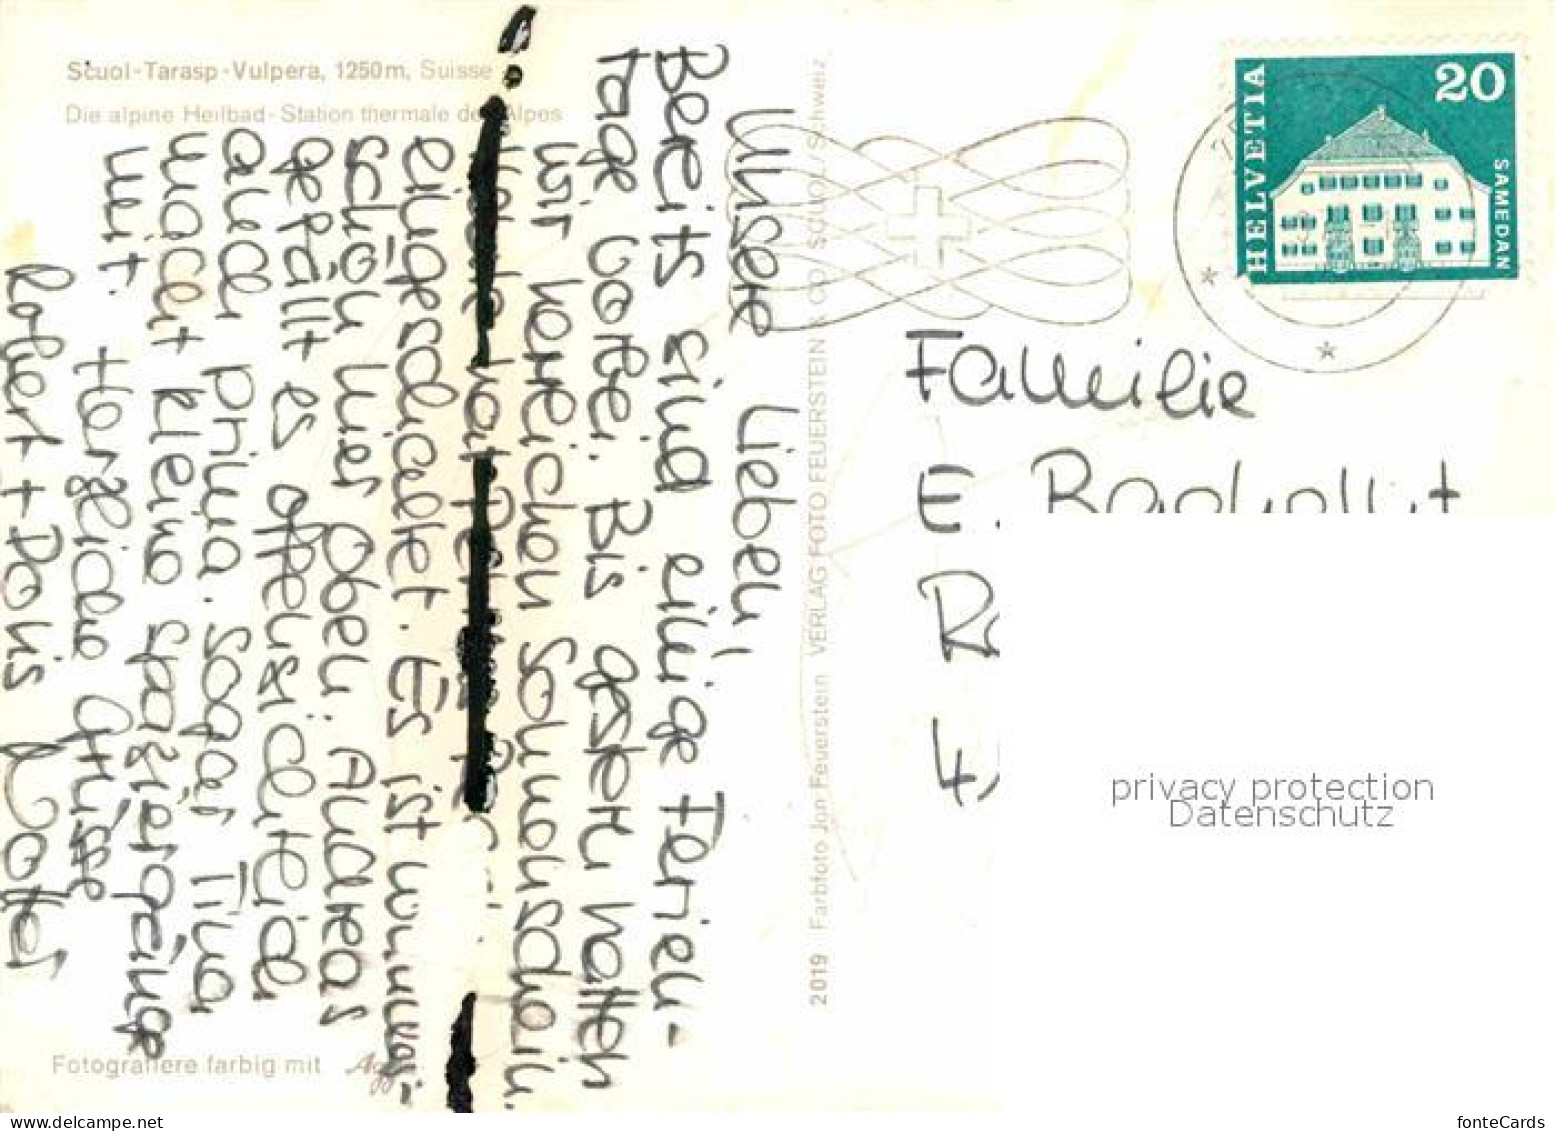 Scuol-Tarasp-Vulpera, 1250m, Suisse
Die alpine Heilbad-Station thermale des Alpes
Unsere Lieben!
Bereits sind einige Ferien-
tage vorbei. Bis gestern hatten
wir herrlichen Sonnenschein.
heute hat Petrus
eingeschaltet. Es ist immer
schön hier oben. Andreas
gefällt es offensichtlich
auch prima. Sogar Tina
macht kleine Spaziergänge
mit. Herzliche Grüsse
Robert + Doris
2019 Farbfoto Jon Feuerstein VERLAG FOTO FEUERSTEIN & CO SCUOL/Schweiz
Fotografiere farbig mit Agfa
HELVETIA
20
SAMEDAN
Familie
E.
privacy protection
Datenschutz
www.delcampe.net
fonteCards